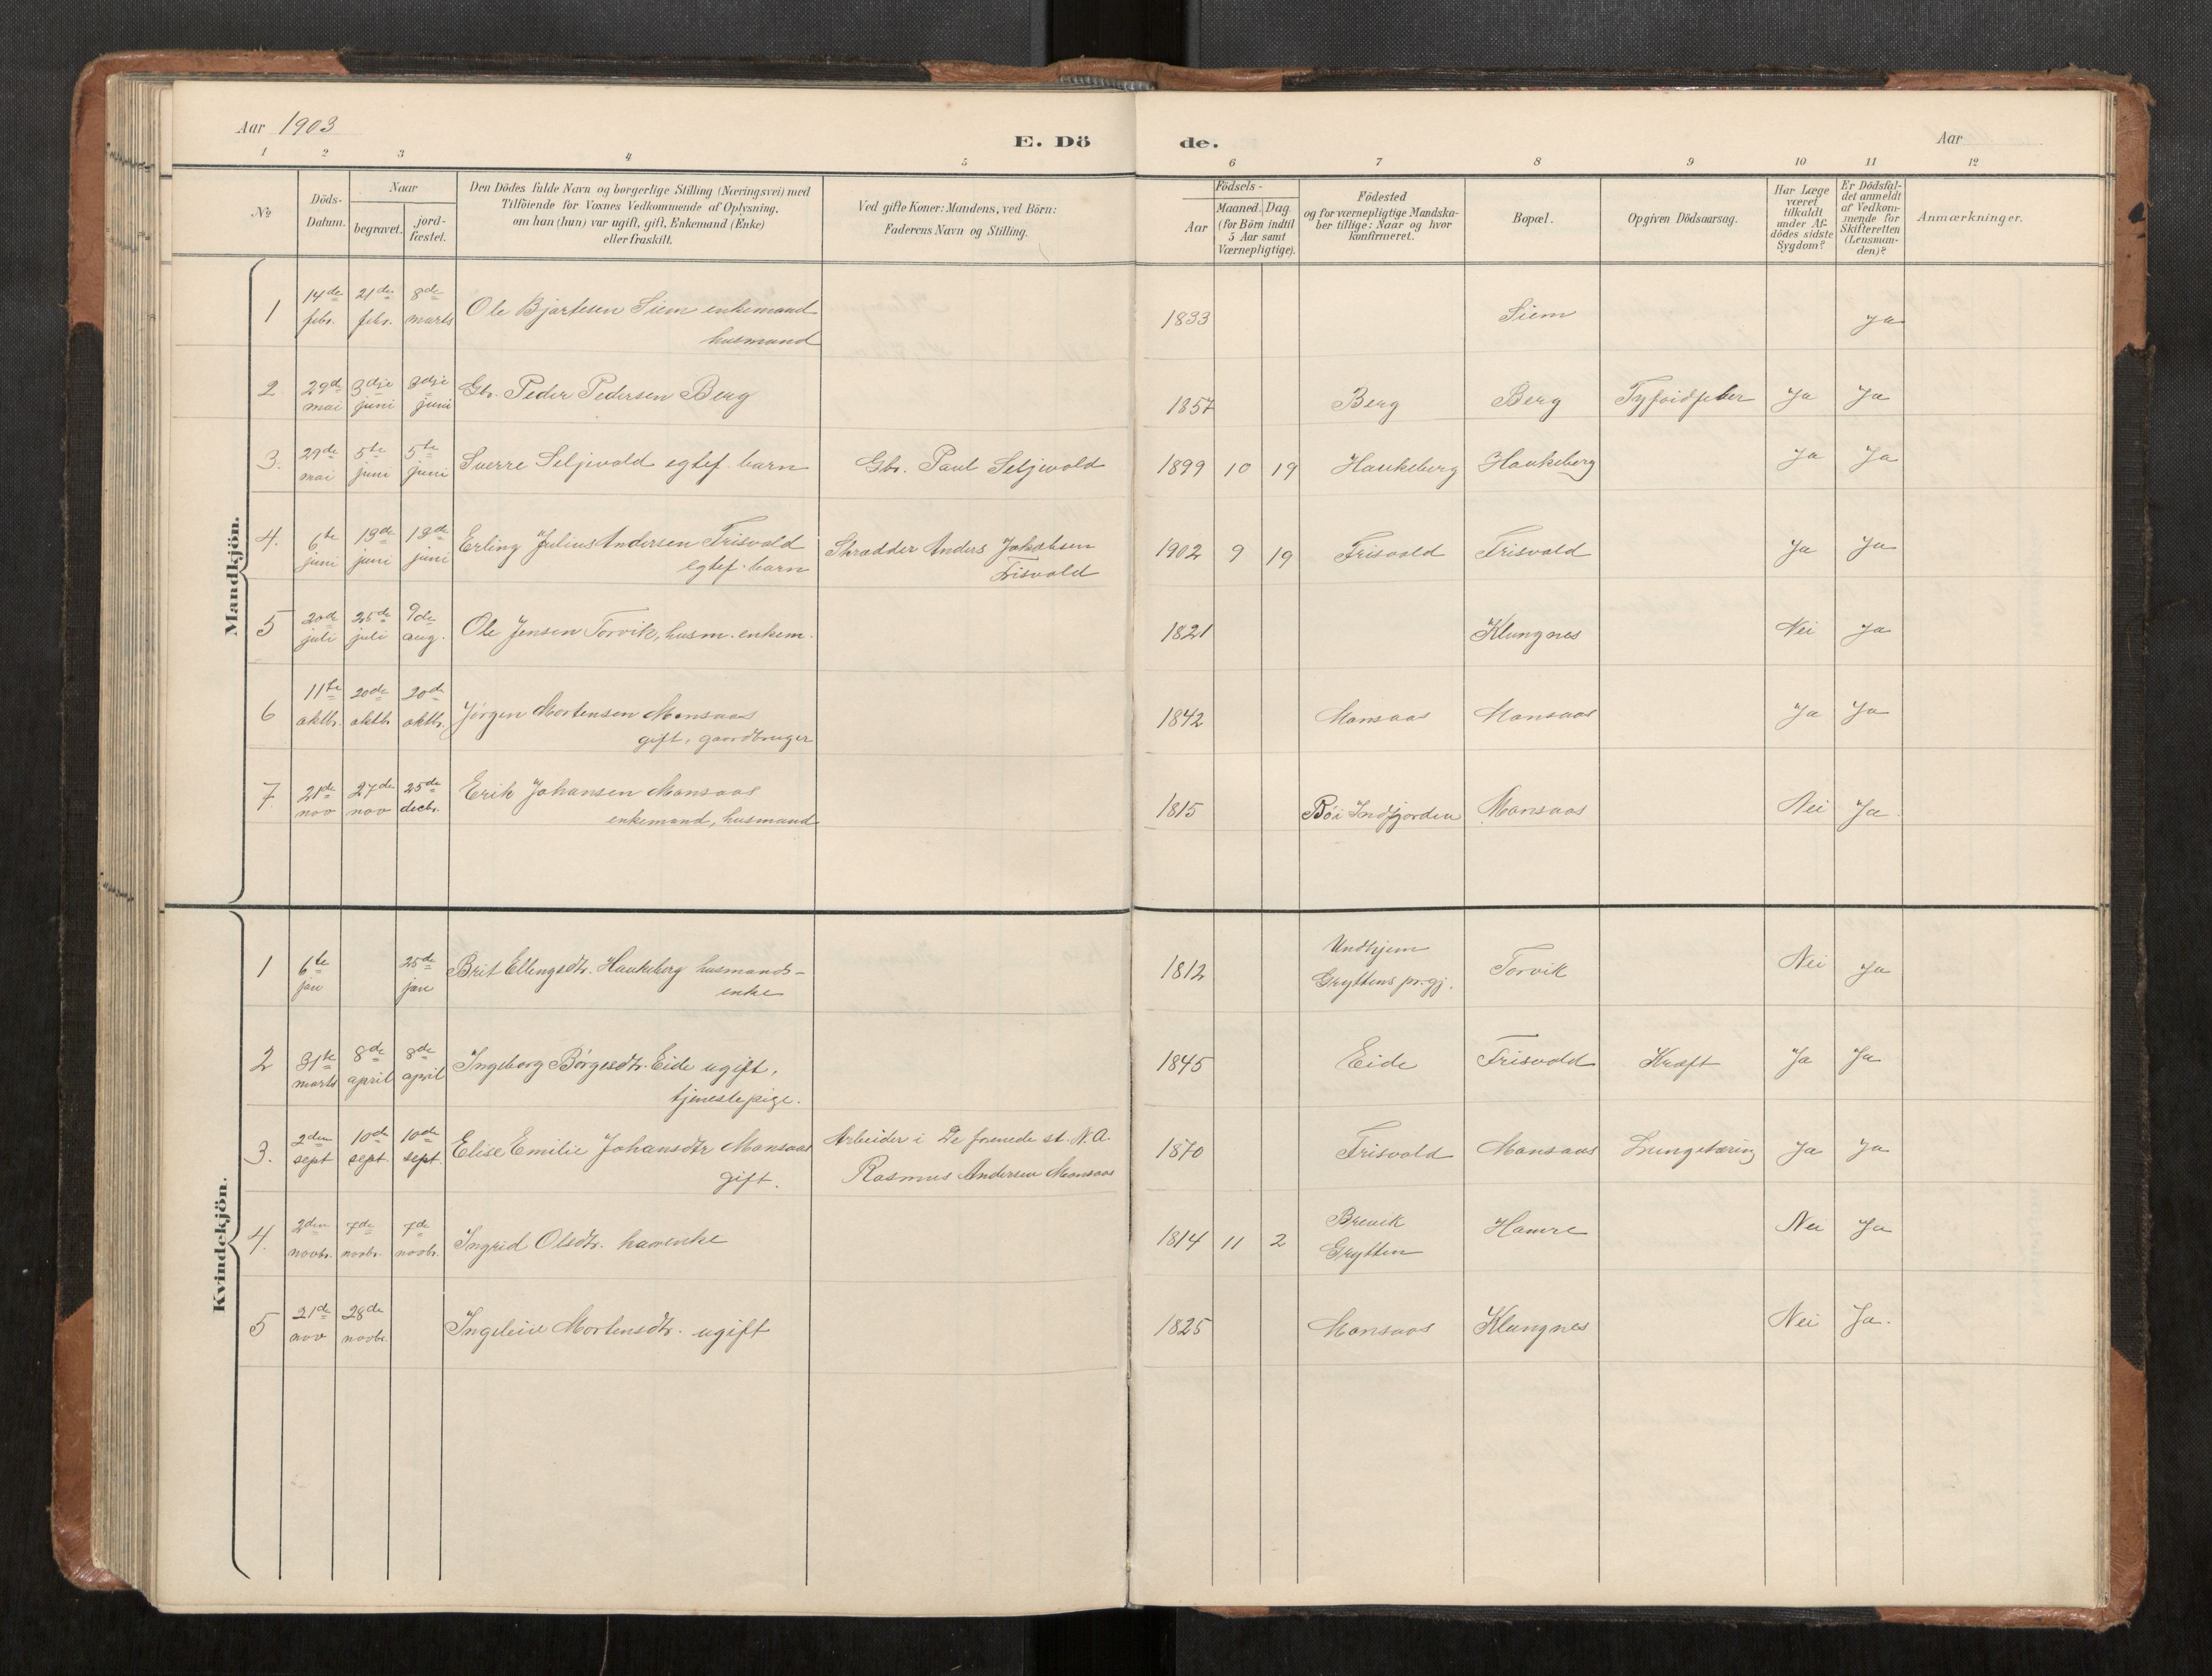 Aar 1903
E. Dö
de.
Aar
1 2 3 4 5 6 7 8 9 10 11 12
No
Döds-
Datum.
Naar
begravet.
jord-
fæstet.
Den Dödes fulde Navn og borgerlige Stilling (Næringsvei) med
Tilföiende for Voxnes Vedkommende af Oplysning,
om han (hun) var ugift, gift, Enkemand (Enke)
eller fraskilt.
Ved gifte Koner: Mandens, ved Börn:
Faderens Navn og Stilling.
Födsels-
Aar
Maaned. Dag.
(for Börn indtil
5 Aar samt
Værnepligtige).
Födested
og for værnepligtige Mandska-
ber tillige: Naar og hvor
konfirmeret.
Bopæl.
Opgiven Dödsaarsag.
Har Læge
været
tilkaldt
under Af-
dödes sidste
Sygdom?
Er Dödsfal-
det anmeldt
af Vedkom-
mende for
Skifteretten
(Lensman-
den)?
Anmærkninger.
Mandkjön.
1 14de febr. 21de febr. 8de marts Ole Bjartesen Siem enkemand 1833 Siem Ja
husmand
2 29de mai 3dje juni 3dje juni Gbr. Peder Pedersen Berg 1857 Berg Berg Tyfoidfeber Ja Ja
3. 29de mai 5te juni 5te juni Sverre Seljevold egtef. barn Gbr. Paul Seljevold 1899 10 19 Haukeberg Haukeberg Ja Ja
4. 6te juni 13de juni 13de juni Erling Julius Andersen Frisvold Skrædder Anders Jakobsen 1902 9 19 Frisvold Frisvold Ja Ja
egtef. barn Frisvold
5 20de juli 25de juli 9de aug. Ole Jensen Torvik, husm. enkem. 1821 Klungnes Nei Ja
6 11te oktb. 20de oktb. 20de oktb. Jørgen Mortensen Monsaas 1842 Monsaas Monsaas Ja Ja
gift, gaardbruger
7. 21de nov 27de nov 25de decbr. Erik Johansen Monsaas 1815 Bøi Indfjorden Monsaas Nei Ja
enkemand, husmand
Kvindekjön.
1 6te jan 25de jan Brit Ellingsdtr. Haukeberg husmands- 1812 Undhjem Torvik Nei Ja
enke Gryttens pr.gj.
2 31te marts 8de april 8de april Ingeborg Børgesdtr. Eide ugift, 1845 Eide Frisvold Kræft Ja Ja
tjenestepige.
3. 2den sept 10de sept. 10de sept. Elise Emilie Johansdtr Monsaas Arbeider i De forenede st. N.A. 1870 Frisvold Monsaas Lungetæring Ja Ja
gift. Rasmus Andersen Monsaas
4. 2den novbr. 7de novbr. 7de novbr. Ingrid Olsdtr. kaarenke 1814 11 2 Brevik Hamre Nei Ja
Grytten
5 21de nov 28de novbr. Ingeleiv Mortensdtr. ugift 1825 Monsaas Klungnes Nei Ja.